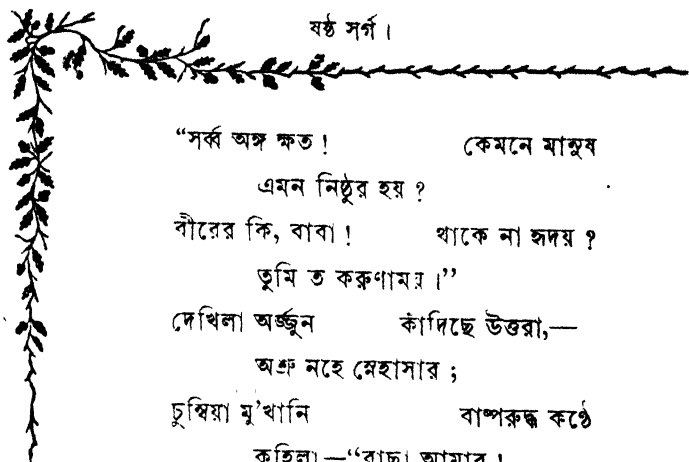 ষষ্ঠ সর্গ।
“সর্ব্ব অঙ্গ ক্ষত! কেমনে মানুষ
এমন নিষ্ঠুর হয়?
বীরের কি, বাবা! থাকে না হৃদয়?
তুমি ত করুণাময়।”
দেখিলা অর্জ্জুন কাঁদিছে উত্তরা,—
অশ্রু নহে স্নেহাসার;
চুম্বিয়া মু'খানি বাষ্পরুদ্ধ কণ্ঠে
কহিলা—“বাছা আমার!